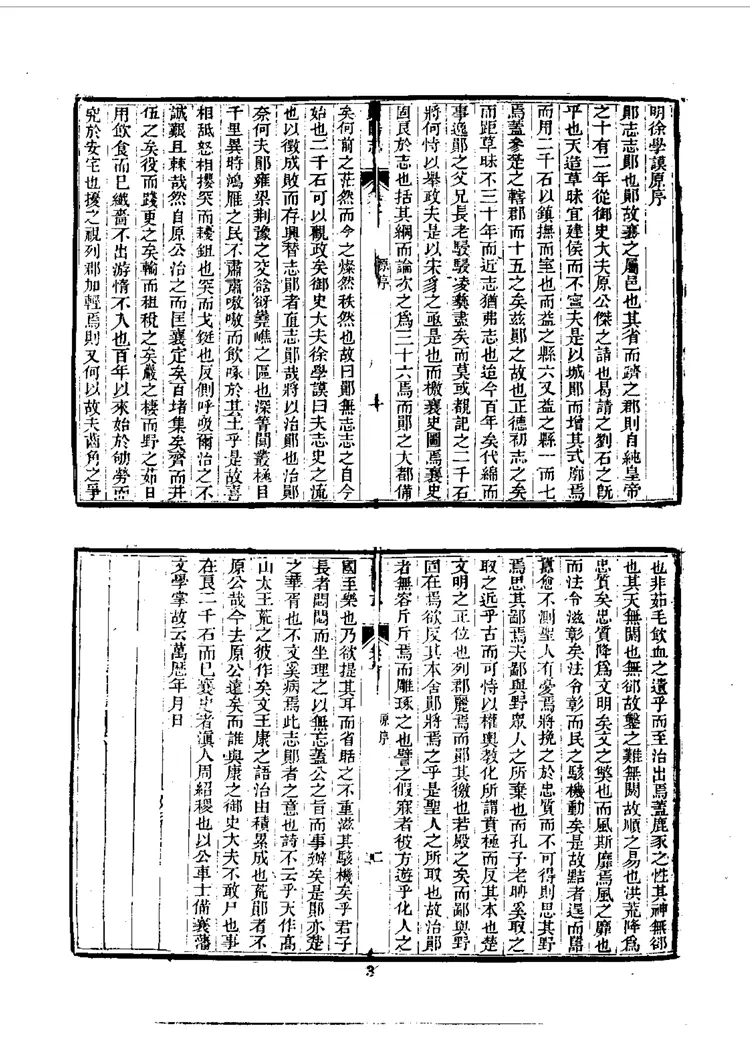 明徐學謨原序
鄖志志鄖也鄖故襄之屬邑也其省而躋之郡則自純皇帝
之十有二年從御史大夫原公傑之請也曷請之劉石之旣
平也天造草昧宜建侯而不寧夫是以城鄖而增其式廓焉
而用二千石以鎮撫而室也而益之縣六又益之縣一而七
焉蓋參楚之轄郡而十五之矣茲鄖之故也正德初志之矣
而距草昧不三十年而近志猶弗志也迨今百年矣代綿而
事逸鄖之父兄長老駸駸凌彝盡矣而莫或覩記之二千石
將何恃以舉政夫是以未遑之亟是也而檄襄史圖焉襄史
固良於志也括其綱而論次之爲三十六焉而鄖之大都備
原序
矣何前之茫然而今之燦然秩然也故曰鄖無志志之自今
始也二千石可以觀政矣御史大夫徐學謨曰夫志史之流
也以徵成敗而存興替志鄖者直志鄖哉將以治鄖也治鄖
奈何夫鄖雍梁荆豫之交谽谺嶢嶕之區也深箐閒叢極目
千里異時鴻雁之民不肅肅嗷嗷而飲啄於其土乎是故喜
相舐怒相攖突而耰鉏也突而戈鋋也反側呼吸爾治之不
誠艱且棘哉然自原公治之而匡襄定矣百堵集矣齊而井
伍之矣役而踐更之矣輸而租稅之矣巖之棲而野之茹日
用飲食而已纎嗇不出游惰不入也百年以來始於劬勞而
究於安宅也擾之視列郡加輕焉則又何以故夫齒角之爭
也非茹毛飲血之遺乎而至治出焉蓋鹿豕之性其神無郤
也其天無閼也無郤故鑿之難無閼故順之易也洪荒降爲
忠質矣忠質降爲文明矣文之獘也而風斯靡焉風之靡也
而法令滋彰矣法令彰而民之駭機動矣是故黠者逞而譎
黨愈不測聖人有憂焉將挽之於忠質而不可得則思其野
焉思其鄙焉夫鄙與野衆人之所棄也而孔子老聃奚取之
取之近乎古而可恃以權輿教化所謂賁極而反其本也楚
文明之正位也列郡麗焉而鄖其徼也若殿之矣而鄙與野
固在焉欲反其本舍鄖將焉之乎是聖人之所取也故治鄖
者無容斤斤焉而雕琢之也譬之假寐者彼方遊乎化人之
原序
二
國至樂也乃欲提其耳而省聒之不重滋其駭機矣乎君子
長者悶悶而坐理之以無忘蓋公之旨而事辦矣是鄖亦楚
之華胥也不文奚病焉此志鄖者之意也詩不云乎天作高
山太王荒之彼作矣文王康之語治由積累成也荒鄖者不
原公哉今去原公遠矣而誰與康之御史大夫不敢尸也事
在良二千石而已襄史者滇人周紹稷也以公車士備襄藩
文學掌故云萬曆年月日
3